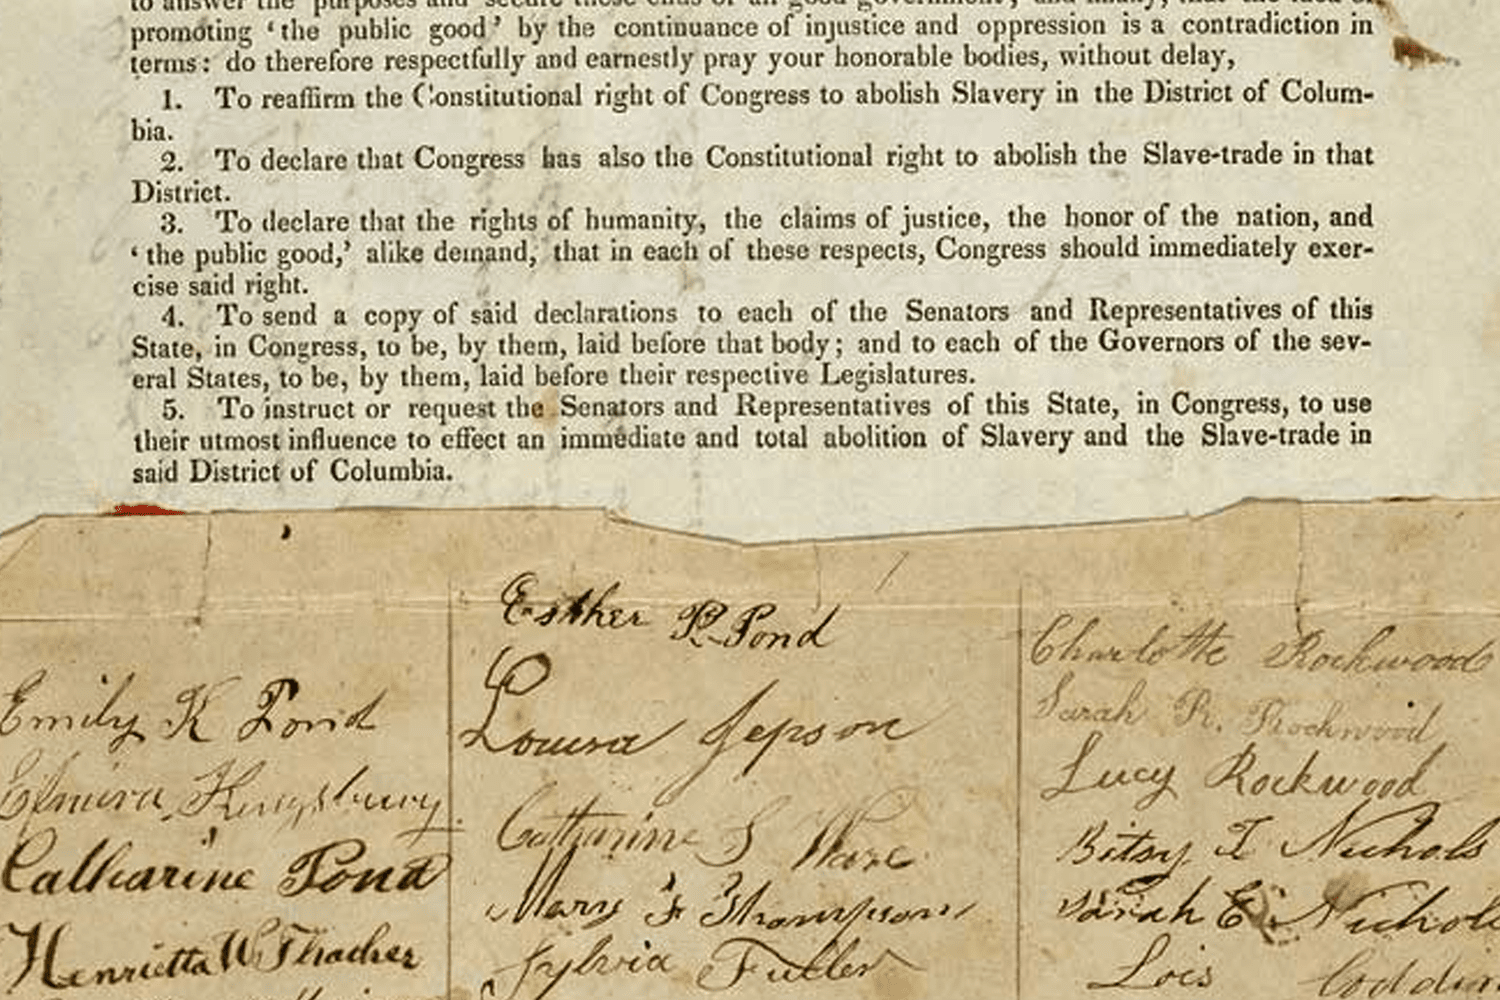 to answer the purposes and secure these ends of all good government; and finally, that the idea of
promoting ‘the public good’ by the continuance of injustice and oppression is a contradiction in
terms: do therefore respectfully and earnestly pray your honorable bodies, without delay,
1. To reaffirm the Constitutional right of Congress to abolish Slavery in the District of Colum-
bia.
2. To declare that Congress has also the Constitutional right to abolish the Slave-trade in that
District.
3. To declare that the rights of humanity, the claims of justice, the honor of the nation, and
‘the public good,’ alike demand, that in each of these respects, Congress should immediately exer-
cise said right.
4. To send a copy of said declarations to each of the Senators and Representatives of this
State, in Congress, to be, by them, laid before that body; and to each of the Governors of the sev-
eral States, to be, by them, laid before their respective Legislatures.
5. To instruct or request the Senators and Representatives of this State, in Congress, to use
their utmost influence to effect an immediate and total abolition of Slavery and the Slave-trade in
said District of Columbia.
Emily K Pond
Elmira Kingsbury
Catharine Pond
Henrietta W Thacher
Esther P Pond
Louisa Jepson
Catharine S Ware
Mary F Thompson
Sylvia Fuller
Charlotte Rockwood
Sarah R. Rockwood
Lucy Rockwood
Bitsy T Nichols
Sarah E Nichols
Lois